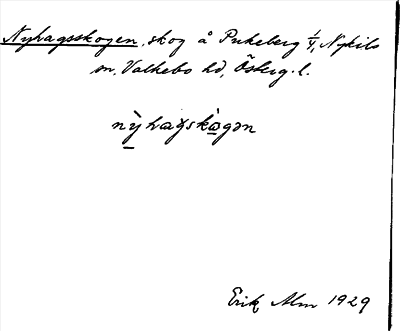 Nyhagsskogen, skog å Pukeberg 1/4, Nykils
sn. Valkebo hd, Österg. l.
nỳhaǥskò̱gən
Erik Alm 1929